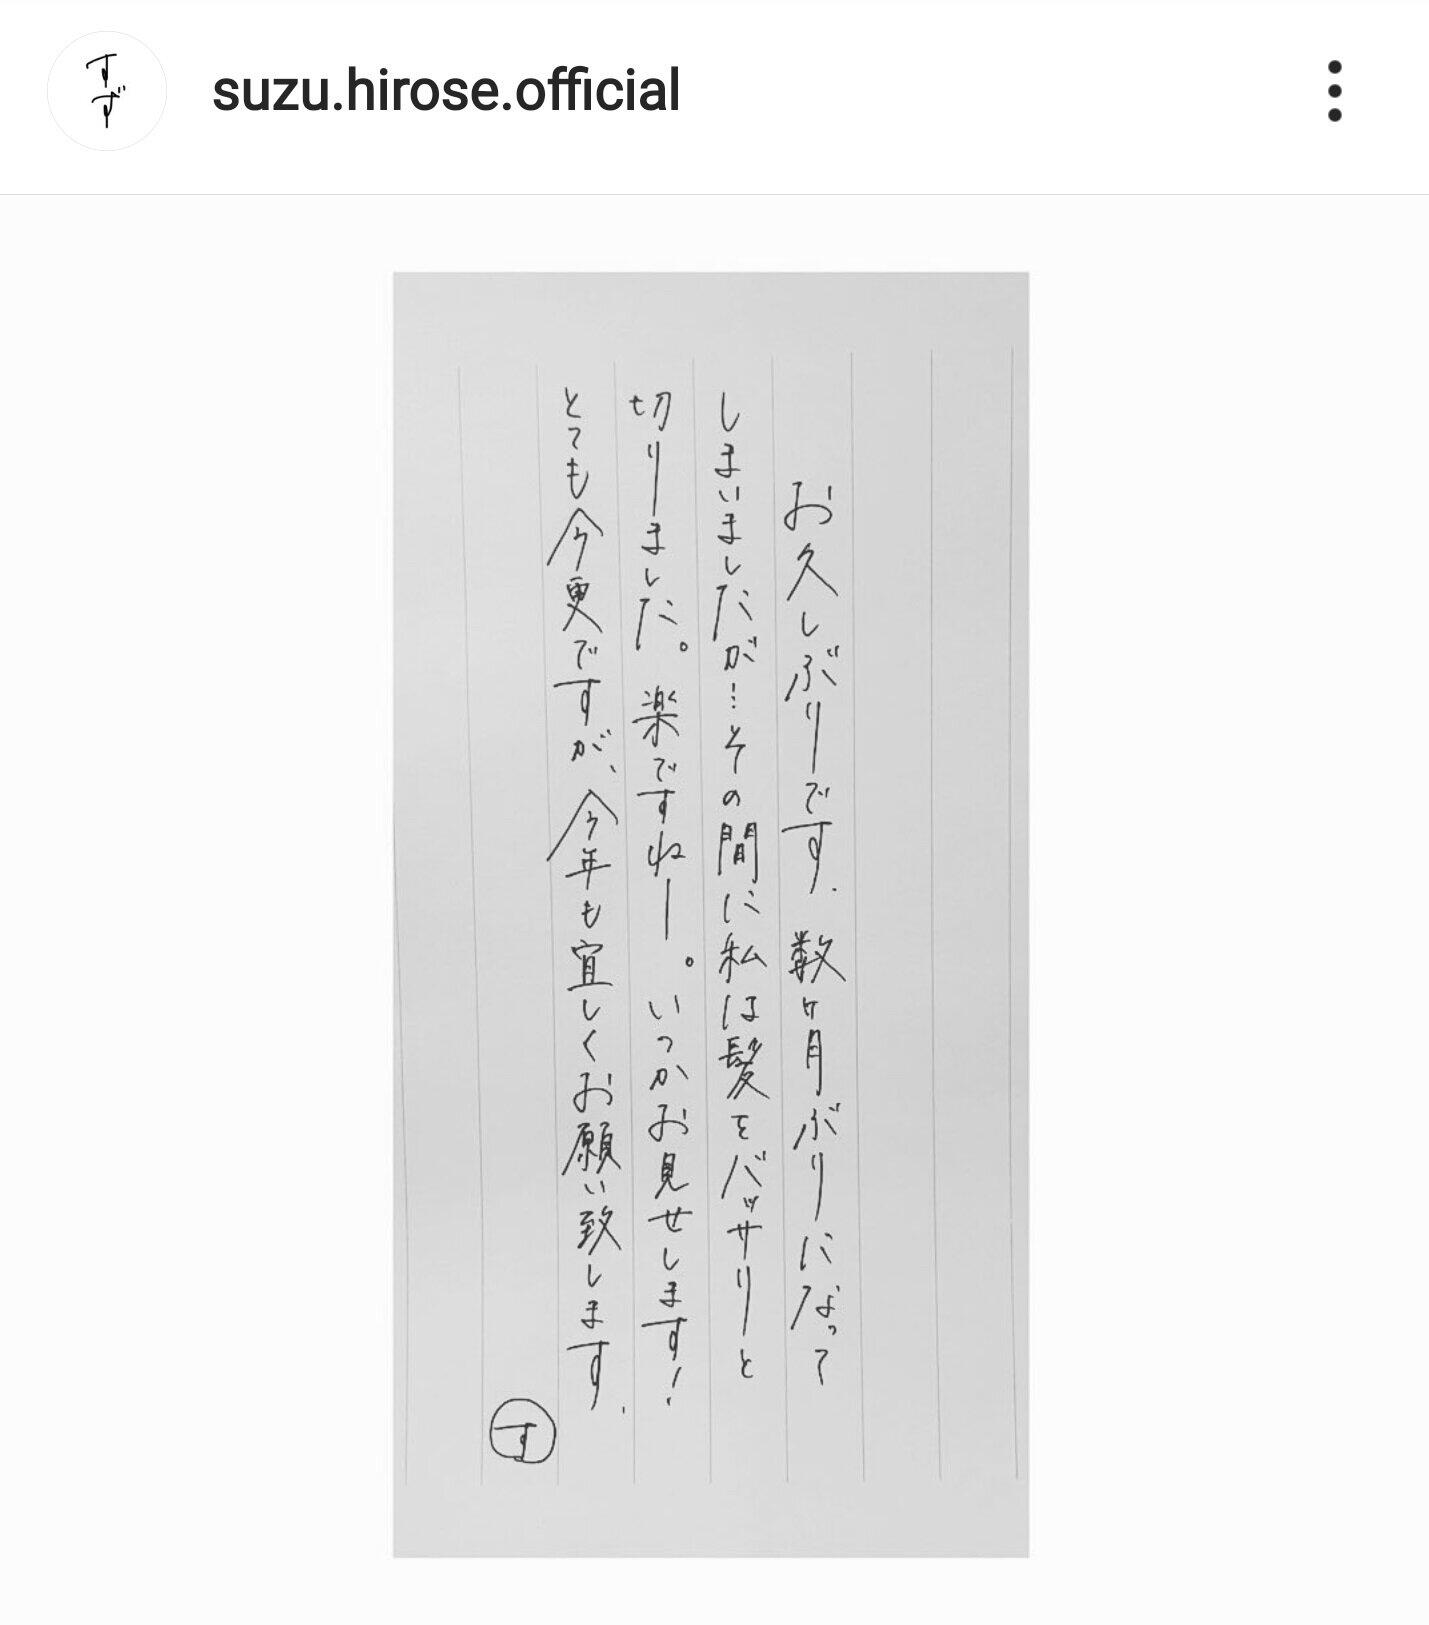 すず
suzu.hirose.official
お久しぶりです.数ヶ月ぶりになって
しまいましたが…その間に私は髪をバッサリと
切りました。楽ですねー。いつかお見せします!
とても今更ですが、今年も宜しくお願い致します.
す